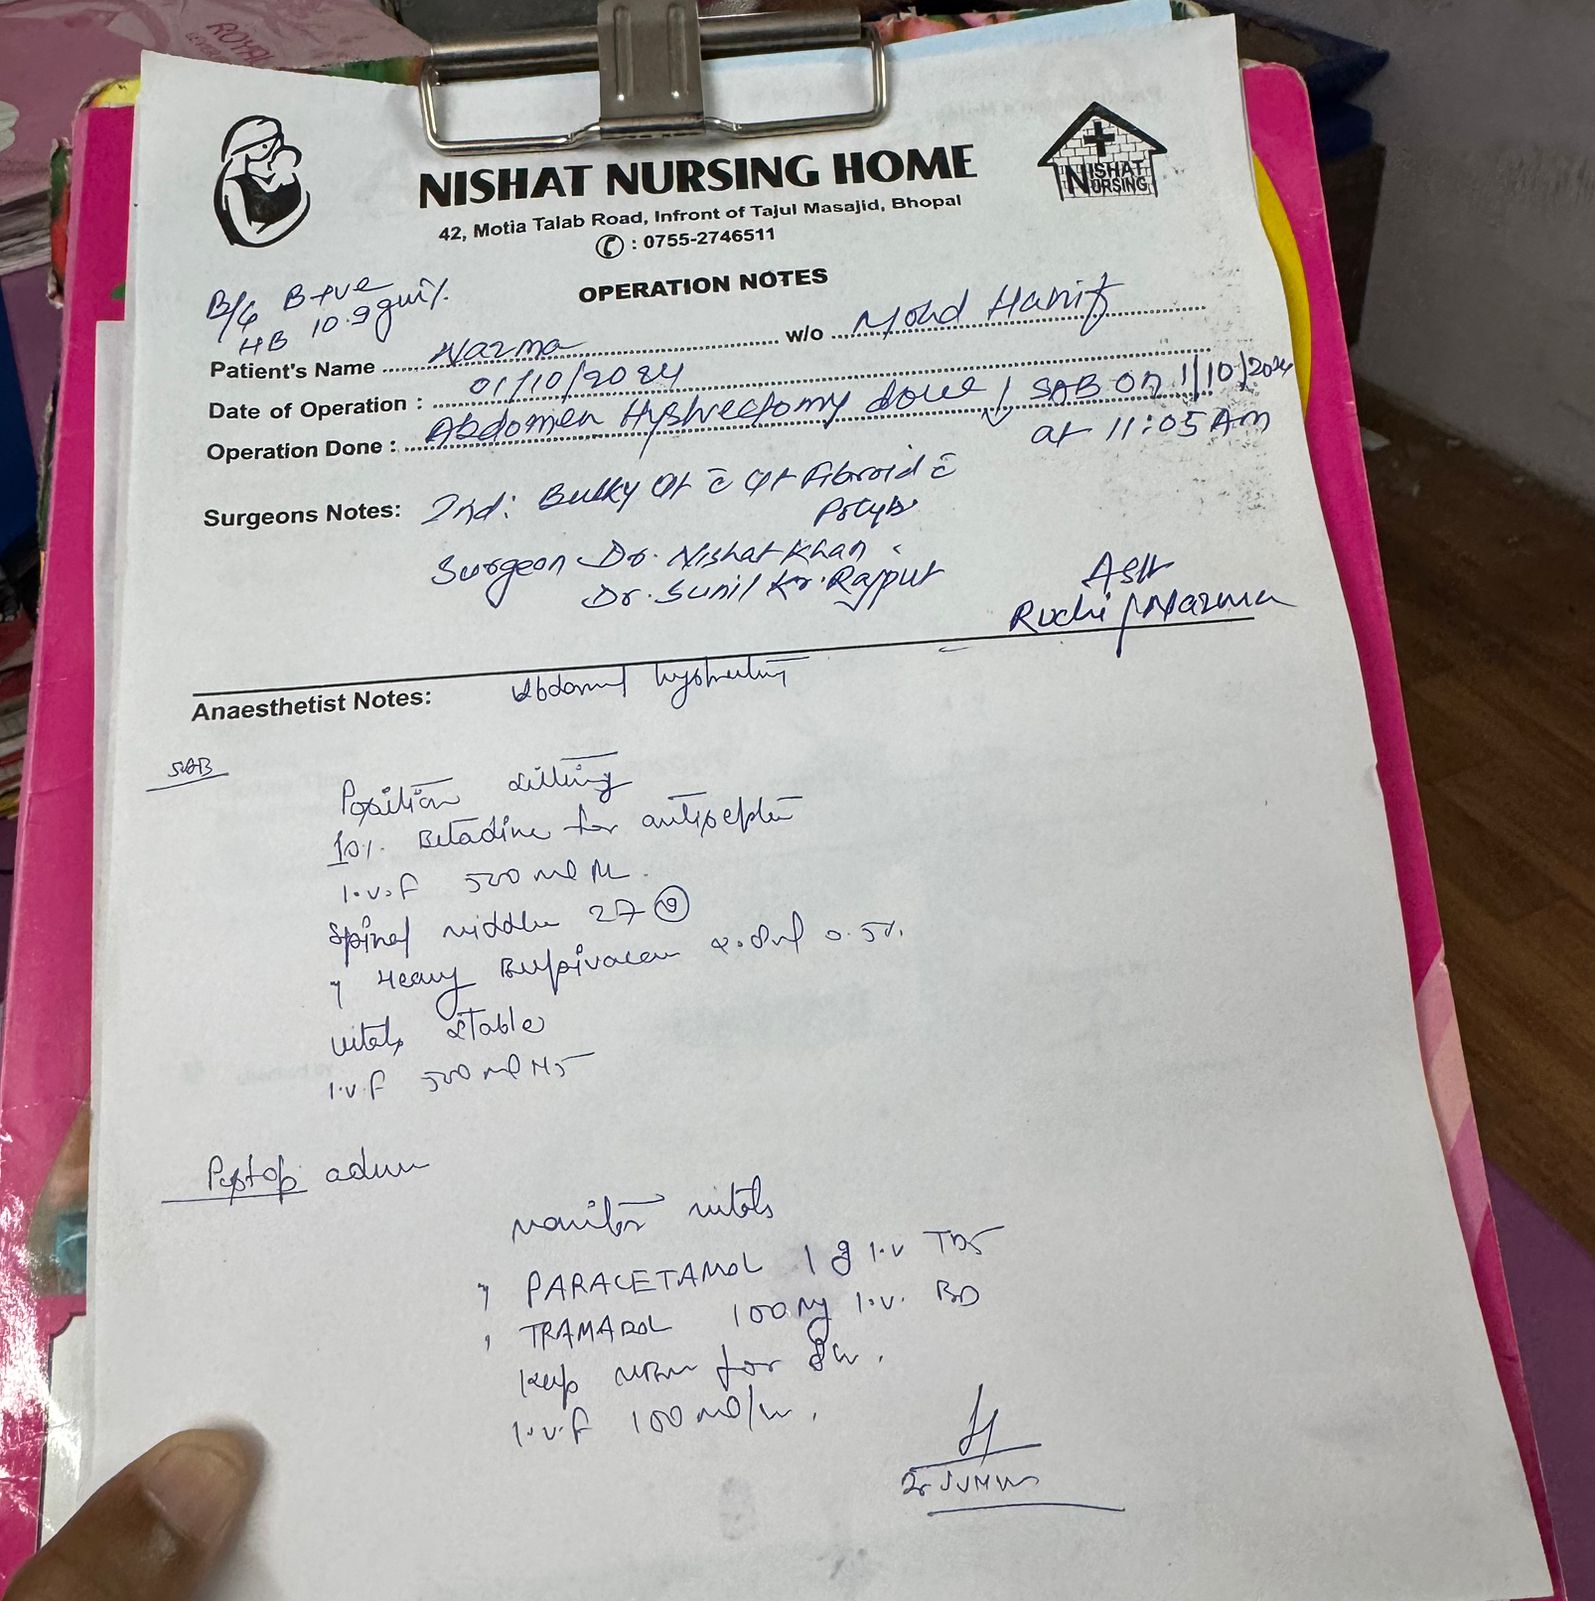 ROYAL
NISHAT NURSING HOME
NISHAT
NURSING
42, Motia Talab Road, Infront of Tajul Masajid, Bhopal
: 0755-2746511
OPERATION NOTES
B/G B+ve
HB 10.9gm%.
Patient's Name Nazma w/o Mohd Hanif
Date of Operation : 01/10/2024
Operation Done : Abdomen Hystrectomy done SAB on 1/10/2024
at 11:05 AM
Surgeons Notes: Ind: Bulky Ut c̄ Fibroid c̄
Polyp
Surgeon Dr. Nishat Khan
Dr. Sunil Kr. Rajput
Asst
Ruchi / Nazma
Anaesthetist Notes:
SAB
Position sitting
10%. Betadine for
I.V.F 500 ml RL
Spinal niddle 27 G
Heavy 0.5%.
vitals stable
I.V.F 500 ml NS
Postop
monitor vitals
PARACETAMOL 1 g I.V TDS
TRAMADOL 100 mg I.V. BD
Keep for
I.V.F 100 ml/hr.
Dr